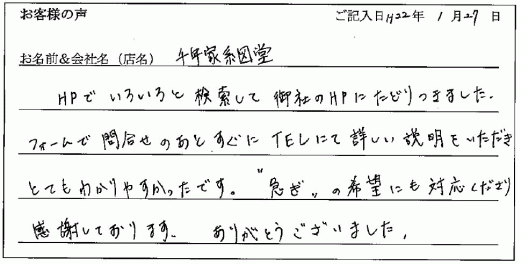 お客様の声 ご記入日H22年 1月27日
お名前&会社名(店名) 千年家系図堂
HPでいろいろと検索して御社のHPにたどりつきました。
フォームで問合せのあとすぐにTELにて詳しい説明をいただき
とてもわかりやすかったです。"急ぎ"の希望にも対応くださり
感謝しております。 ありがとうございました。